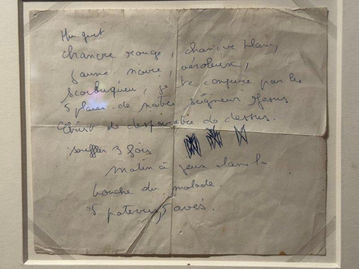 Muguet
chancre rouge, chancre blanc,
jaune, noire, aéreux,
scorbuqueu, je te conjure par les
5 plaies de notre seigneur Jésus
Christ de
souffler 3 fois
matin à jeun dans la
bouche du malade
5 pater, 5 avés.